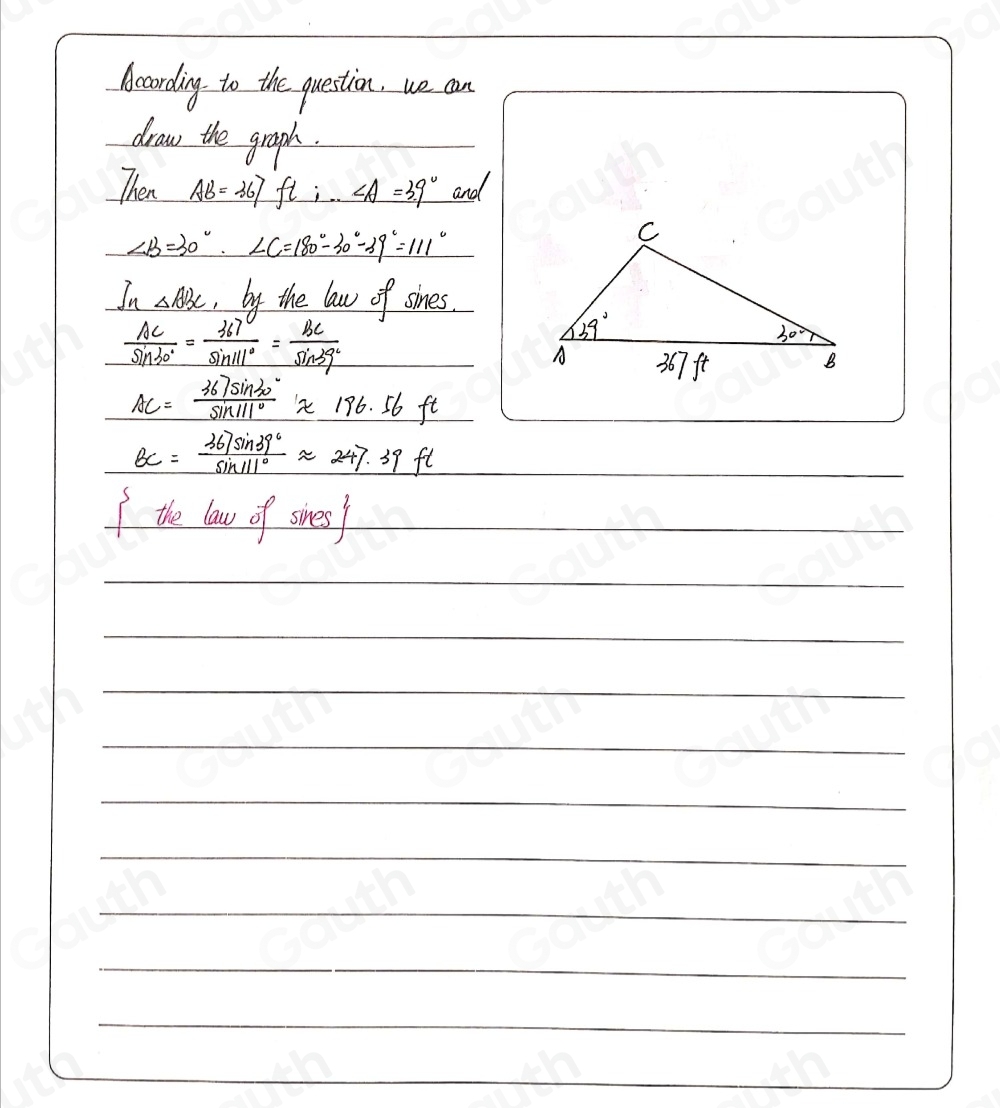 According to the question, we can
draw the graph.
Then AB = 367 ft ; ∠A = 39° and
∠B = 30°. ∠C = 180° - 30° - 39° = 111°
In △ABC, by the law of sines.
AC/sin30° = 367/sin111° = BC/sin39°
AC = 367sin30°/sin111° ≈ 196.56 ft
BC = 367sin39°/sin111° ≈ 247.39 ft
{ the law of sines }
C
39°
30°
A
367 ft
B
Gauth